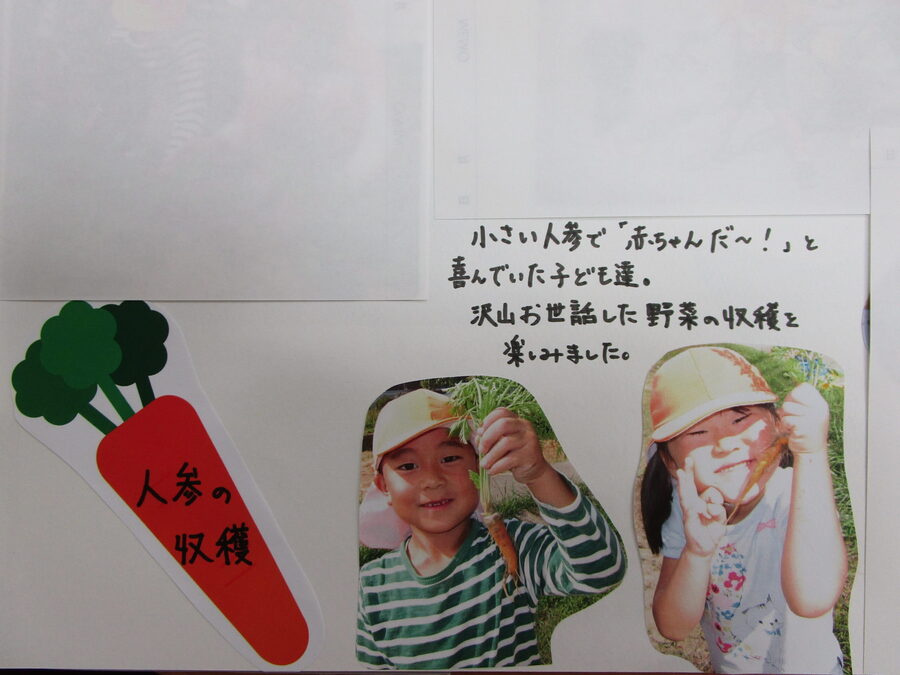 小さい人参で「赤ちゃんだ～！」と
喜んでいた子ども達。
沢山お世話した野菜の収穫を
楽しみました。
人参の
収穫